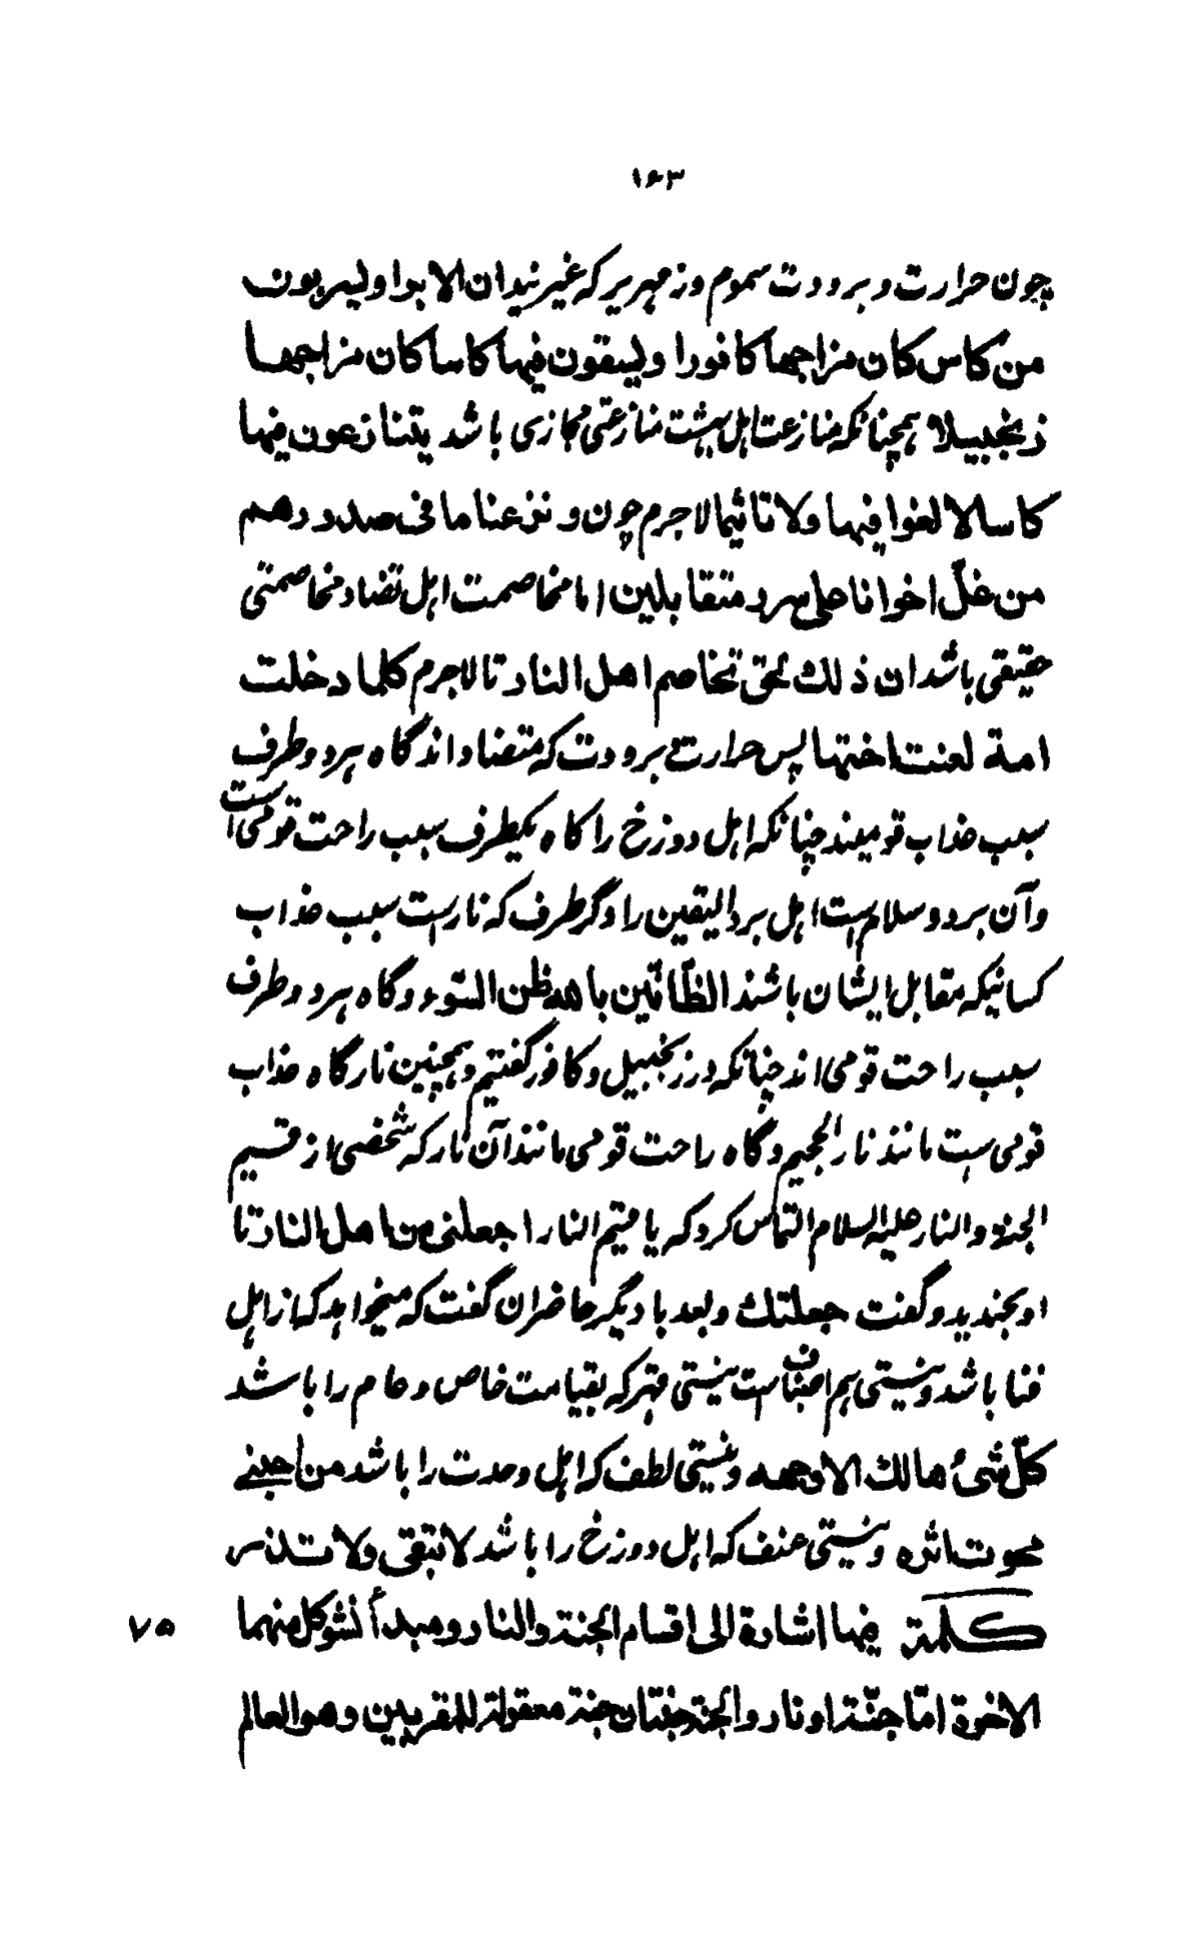 ۱۶۳
چون حرارت و برودت سموم و زمهریر که غیر نیدان الابرار لیشربون
من کاس کان مزاجها کافورا و لیسقون فیها کاسا کان مزاجها
زنجبیلا همچنانکه منازعت اهل بهشت منازعتی مجازی باشد یتنازعون فیها
کاسا لا لغوا فیها ولا تاثیما لاجرم چون و نزعنا ما فی صدورهم
من غلّ اخوانا علی سرر متقابلین اما مخاصمت اهل تضاد مخاصمتی
حقیقی باشد ان ذلك لحق تخاصم اهل النار تا لاجرم کلما دخلت
امة لعنت اختها پس حرارت برودت که متضاد اند گاه هر دو طرف
سبب عذاب قومیند چنانکه اهل دوزخ را کاه یکطرف سبب راحت قومی است
و آن برد و سلام است اهل برد الیقین را و گر طرف که نارست سبب عذاب
کسانیکه مقابل ایشان باشند الظّانّین بالله ظن السّوء و گاه هر دو طرف
سبب راحت قومی اند چنانکه در زنجبیل و کافور گفتیم و همچنین نار گاه عذاب
قومی ست مانند نار الجحیم و گاه راحت قومی مانند آن نار که شخصی از قسیم
الجنة و النار علیه السلام التماس کرد که یا قسیم النار اجعلنی من اهل النار تا
او بخندید و گفت جعلتك و بعد با دیگر حاضران گفت که میخواهد که از اهل
فنا باشد و نیستی هم اصناف است نیستی قهر که بقیامت خاص و عام را باشد
کلّ شیء هالك الا وجهه و نیستی لطف که اهل وحدت را باشد من احبنے
محوت اثره و نیستی عنف که اهل دوزخ را باشد لا تبقی ولا تذر
کلمة فیها اشارة الی اقسام الجنة و النار و مبدأ نشو کل منهما ۷۵
الاخرة امّا جنّة او نار و الجنة جنتان جنة معقولة للمقربین و هو العالم